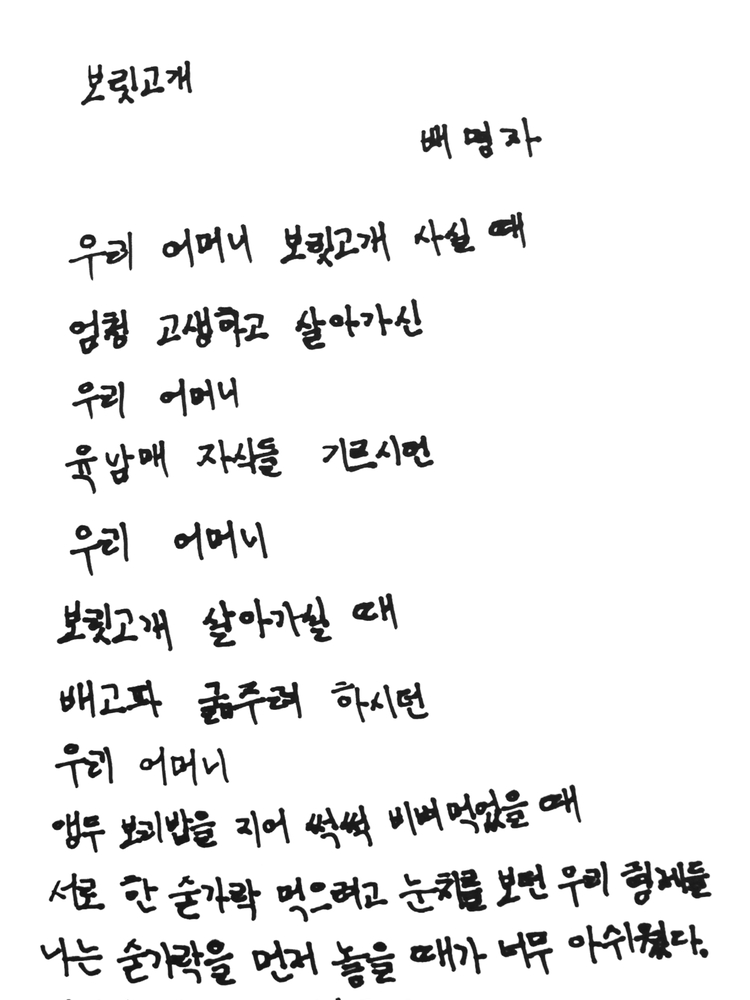 보릿고개
배명자
우리 어머니 보릿고개 사실 때
엄청 고생하고 살아가신
우리 어머니
육남매 자식들 기르시면
우리 어머니
보릿고개 살아가실 때
배고파 굶주려 하시던
우리 어머니
앵두 보리밥을 지어 썩썩 비벼먹었을 때
서로 한 숟가락 먹으려고 눈치를 보던 우리 형제들
나는 숟가락을 먼저 놓을 때가 너무 아쉬웠다.